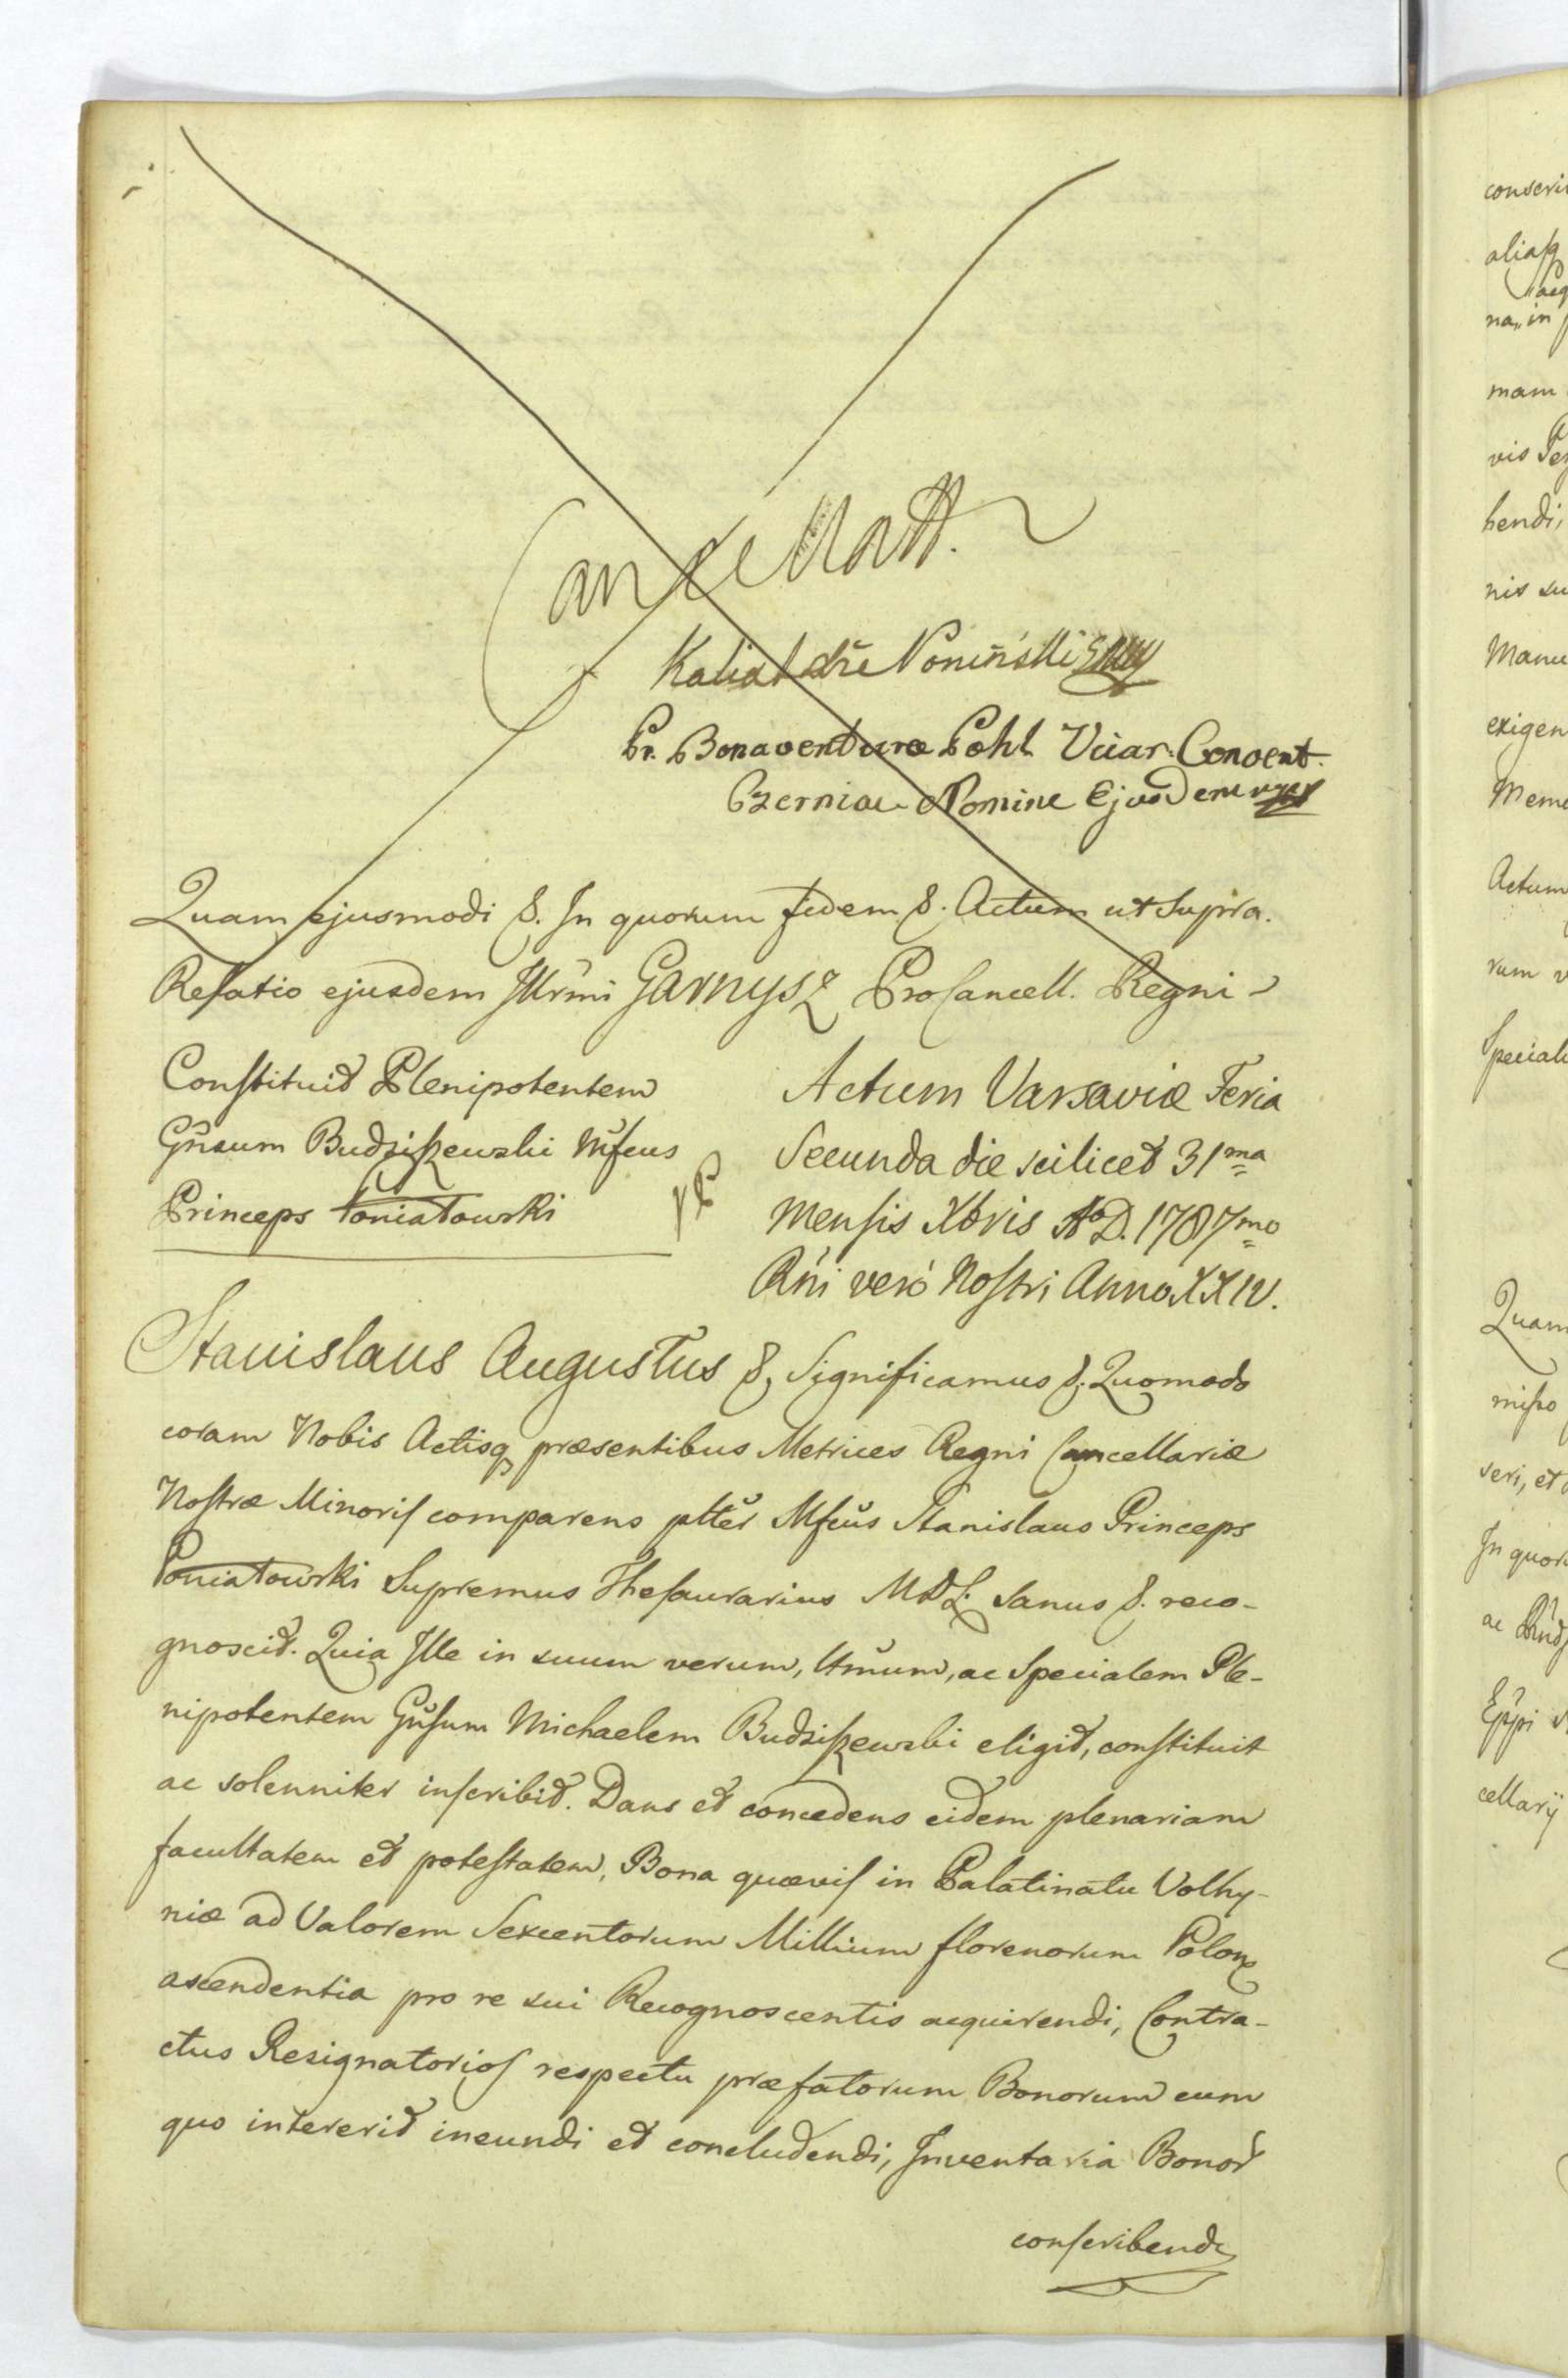 Cancellatt.
Kalixt dñe Poniński mp
Pr. Bonaventura Pohl Vicar. Convent.
Czerniae Nomine Ejusdem mp
Quam ejusmodi &. In quorum fidem &. Actum ut Supra.
Relatio ejusdem Jllr̃mi Garnysz ProCancell. Regni
Constituit Plenipotentem
Gñsum Budziszewski Mfcus
Princeps Poniatowski
Actum Varsaviæ Feria
Secunda die scilicet 31ma
Mensis Xbris Ao D. 1787mo
Rñi verò Nostri Anno XXIV.
Stanislaus Augustus &, Significamus &. Quomodo
coram Nobis Actisq præsentibus Metrices Regni Cancellariæ
Nostræ Minoris comparens plter Mfcus Stanislaus Princeps
Poniatowski Supremus Thesaurarius MDL. Sanus &. reco-
gnoscit. Quia Ille in suum verum, ltmum, ac Specialem Ple-
nipotentem Gñsum Michaelem Budziszewski eligit, constituit
ac solenniter inscribit. Dans et concedens eidem plenariam
facultatem et potestatem, Bona quævis in Palatinatu Volhy-
niæ ad Valorem Sexcentorum Millium florenorum Polon
ascendentia pro re sui Recognoscentis acquirendi, Contra-
ctus Resignatorios respectu præfatorum Bonorum cum
quo intererit ineundi et concludendi, Inventaria Bonor
conscribendi
conscri
aliasq
acq
na in
mam
vis
hendi,
nis su
Manu
exigen
Meme
Actum
rum v
Speciali
Quam
misso
seri, et
In quor
ac
Eppi
cellarij